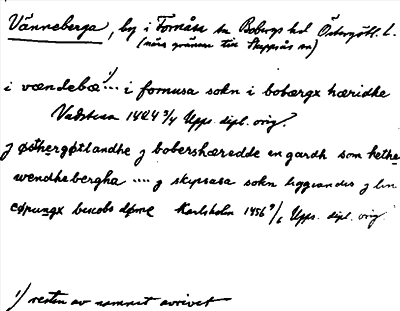 Vänneberga, by i Fornåsa sn Bobergs hd Östergötl. l.
(nära gränsen till Skeppsås sn)
i vændebæ¹⁾... i fornusa sokn i bobærgx hæridhe
Vadstena 1424 3/4 Upps. dipl. orig.
j østhergøtlandhe j bobershæredde en gardh som hethe
wendhebergha .... j skipsasa sokn liggiandes j lin
cøpungx bescobs døme Karlsholm 1456 9/6 Upps. dipl. orig.
1) resten av namnet avrivet